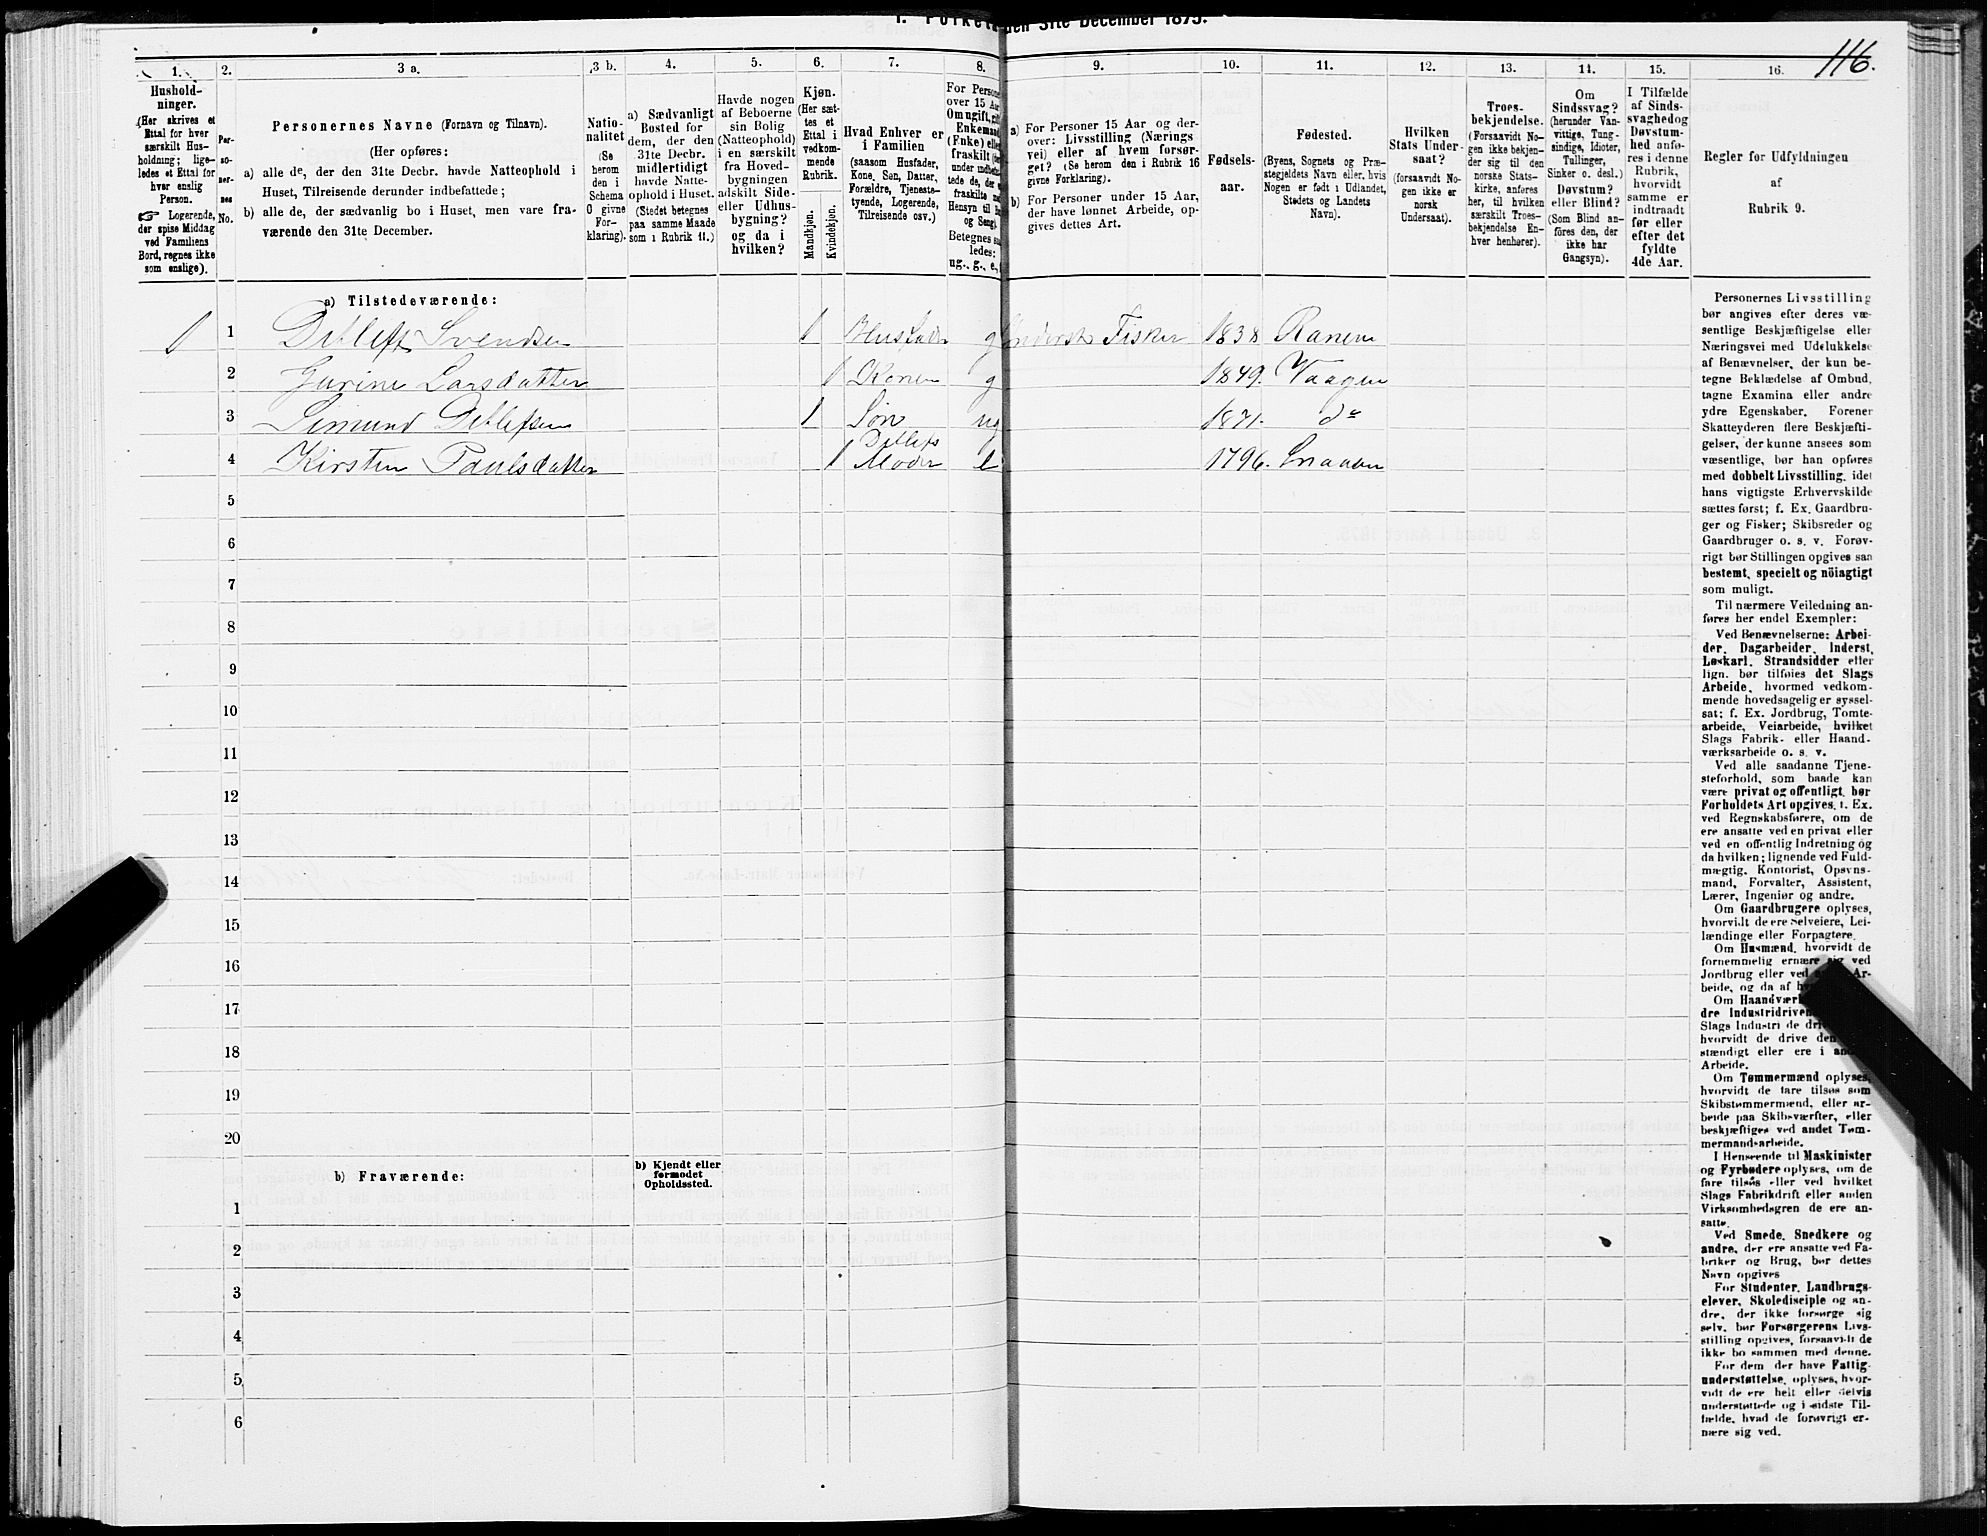 I. Folket den 31te December 1875.
116.
1.
2.
3 a.
3 b.
4.
5.
6.
7.
8.
9.
10.
11.
12.
13.
14.
15.
16.
Hushold-
ninger.
(Her skrives et
Ettal for hver
særskilt Hus-
holdning; lige-
ledes et Ettal for
hver enslig
Person.
☞ Logerende,
der spise Middag
ved Familiens
Bord, regnes ikke
som enslige).
Per-
so-
ner-
nes
No.
Personernes Navne (Fornavn og Tilnavn).
(Her opføres:
a) alle de, der den 31te Decbr. havde Natteophold i
Huset, Tilreisende derunder indbefattede;
b) alle de, der sædvanlig bo i Huset, men vare fra-
værende den 31te December.
Natio-
nalitet
(Se
herom
den i
Schema
O givne
For-
klaring).
a) Sædvanligt
Bosted for
dem, der den
31te Decbr.
midlertidigt
havde Natte-
ophold i Huset.
(Stedet betegnes
paa samme Maade
som i Rubrik 11.)
Havde nogen
af Beboerne
sin Bolig
(Natteophold)
i en særskilt
fra Hoved-
bygningen
adskilt Side-
eller Udhus-
bygning?
og da i
hvilken?
Kjøn.
(Her sæt-
tes et
Ettal i
vedkom-
mende
Rubrik.
Mandkjøn.
Kvindekjøn.
Hvad Enhver er
i Familien
(saasom Husfader,
Kone, Søn, Datter,
Forældre, Tjeneste-
tyende, Logerende,
Tilreisende osv.)
For Persone
over 15 Aar
Om ugift, gift
Enkemand
(Enke) eller
fraskilt
Betegnes saa
ledes:
ug., g., e.,
a) For Personer 15 Aar og der-
over: Livsstilling (Nærings
vei) eller af hvem forsør-
get? (Se herom den i Rubrik 16
givne Forklaring).
b) For Personer under 15 Aar,
der have lønnet Arbeide, op-
gives dettes Art.
Fødsels-
aar.
Fødested.
(Byens, Sognets og Præ-
stegjeldets Navn eller, hvis
Nogen er født i Udlandet,
Stedets og Landets
Navn).
Hvilken
Stats Under-
saat?
(forsaavidt No-
gen ikke er
norsk
Undersaat).
Troes-
bekjendelse.
(Forsaavidt No-
gen ikke bekjen-
der sig til den
norske Stats-
kirke, anføres
her, til hvilken
særskilt Troes-
bekjendelse En-
hver henhører).
Om
Sindssvag?
(herunder Van-
vittige, Tung-
sindige, Idioter,
Tullinger,
Sinker o. desl.)
Døvstum?
eller Blind?
(Som Blind an-
føres den, der
ikke har
Gangsyn).
I Tilfælde
af Sinds-
svaghed og
Døvstum-
hed anfø-
res i denne
Rubrik,
hvorvidt
samme er
indtraadt
før eller
efter det
fyldte
4de Aar.
Regler for Udfyldningen
af
Rubrik 9.
a) Tilstedeværende:
1 1 Detlef Svendsen 1 Husfader g Inderst Fisker 1838 Ranen
2 Gurine Larsdatter 1 Konen g 1849. Vaagen
3 Simund Detlefsen 1 Søn ug 1871. do
4 Kirsten Paulsdatter 1 Detlefs Moder e 1796.
5
6
7
8
9
10
11
12
13
14
15
16
17
18
19
20
b) Fraværende:
b) Kjendt eller
formodet
Opholdssted.
1
2
3
4
5
6
Personernes Livsstilling
bør angives efter deres væ-
sentlige Beskjæftigelse eller
Næringsvei med Udelukkelse
af Benævnelser, der kun be-
tegne Beklædelse af Ombud,
tagne Examina eller andre
ydre Egenskaber. Forener
Skatteyderen flere Beskjæfti-
gelser, der kunne ansees som
væsentlige, bør han opføres
med dobbelt Livsstilling, idet
hans vigtigste Erhvervskilde
sættes først; f. Ex. Gaardbru-
ger og Fisker; Skibsreder og
Gaardbruger o. s. v. Forøv-
rigt bør Stillingen opgives saa
bestemt, specielt og nöiagtigt
som muligt.
Til nærmere Veiledning an-
føres her endel Exempler:
Ved Benævnelserne: Arbei-
der, Dagarbeider, Inderst,
Løskarl, Strandsidder eller
lign. bør tilføies det Slags
Arbeide, hvormed vedkom-
mende hovedsagelig er syssel-
sat; f. Ex. Jordbrug, Tomte-
arbeide, Veiarbeide, hvilket
Slags Fabrik- eller Haand-
værksarbeide o. s. v.
Ved alle saadanne Tjene-
steforhold, som baade kan
være privat og offentligt, bør
Forholdets Art opgives, t. Ex.
ved Regnskabsførere, om de
ere ansatte ved en privat eller
ved en offentlig Indretning og
da hvilken; lignende ved Fuld-
mægtig, Kontorist, Opsyns-
mand, Forvalter, Assistent,
Lærer, Ingeniør og andre.
Om Gaardbrugere oplyses,
hvorvidt de ere Selveiere, Lei-
lændinge eller Forpagtere.
Om Husmænd, hvorvidt de
fornemmelig ernære sig ved
Jordbrug eller ved Ar-
beide, og da af
Om Haandværk
dre Industridriven
Slags Industri de dri
hvorvidt de drive den
stændigt eller ere i
Arbeide.
Om Tømmermænd oplyses,
hvorvidt de fare tilsøs som
Skibstømmermænd, eller ar-
beide paa Skibsværfter, eller
beskjæftiges ved andet Tøm-
mermandsarbeide.
I Henseende til Maskinister
og Fyrbødere oplyses, om de
fare tilsøs eller ved hvilket
Slags Fabrikdrift eller anden
Virksomhedsgren de ere an-
satte.
Ved Smede, Snedkere og
andre, der ere ansatte ved Fa-
briker og Brug, bør dettes
Navn opgives
For Studenter, Landbrugs-
elever, Skoledisciple og an-
dre, der ikke forsørge sig
selv, bør Forsørgerens Livs-
stilling opgives, forsaavidt de
ikke bo sammen med denne.
For dem der have Fattig-
understøttelse, oplyses, hvor-
vidt de ere helt eller delvis
understøttede og i sidste Til-
fælde, hvad de forøvrigt er-
nære sig ved.